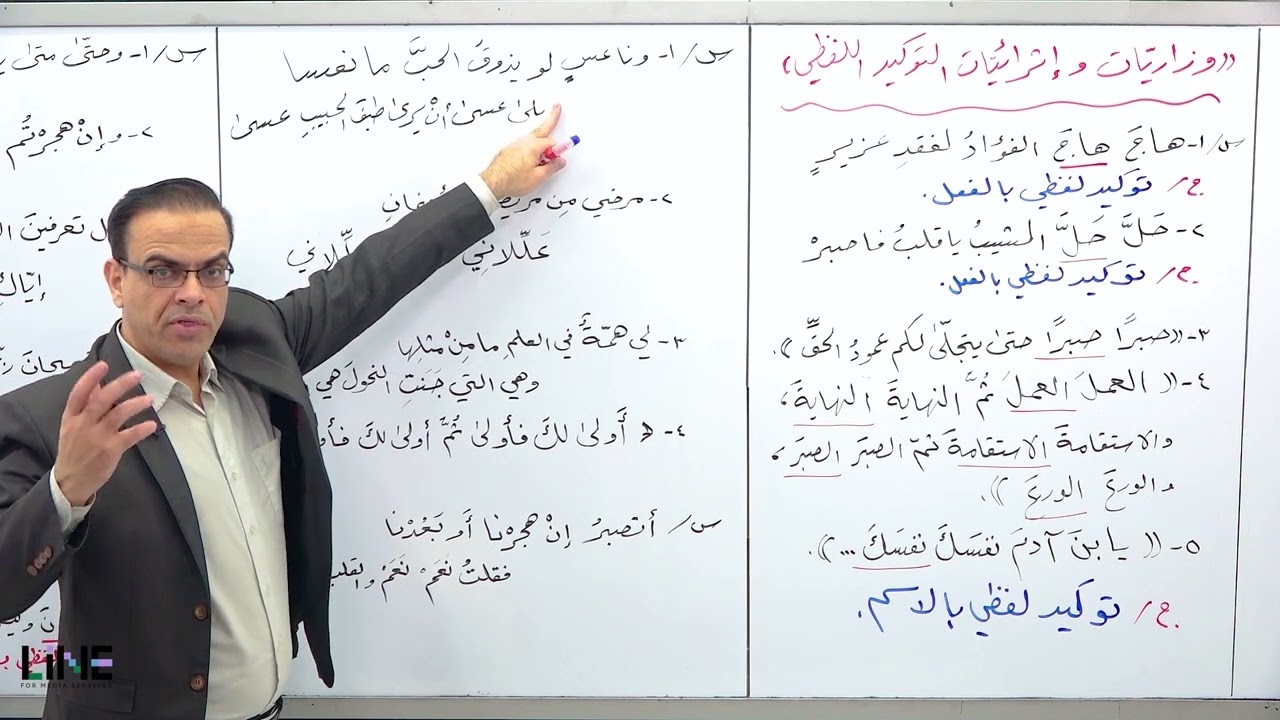 ((وزاريّات و إثرائيّات التوكيد اللفظي))
س/١- هاجَ هاجَ الفؤادُ لفقدِ عزيزٍ
ج/ توكيد لفظي بالفعل.
٢- حَلَّ حَلَّ المشيبُ يا قلبُ فاصبرْ
ج/ توكيد لفظي بالفعل.
٣- ((صبرًا صبرًا حتىٰ يتجلّىٰ لكم عمودُ الحقِّ)).
٤- ((العملَ العملَ ثُمَّ النهايةَ النهايةَ،
والاستقامةَ الاستقامةَ ثمّ الصبرَ الصبرَ،
والورعَ الورعَ)).
٥- ((يا بنَ آدمَ نفسَكَ نفسَكَ ...)).
ج/ توكيد لفظي بالاسم.
س/١- وناعسٍ لو يذوقُ الحبَّ ما نفسا
علىٰ عسىٰ أنْ يرىٰ طبقَ الحبيبِ عسىٰ
٢- مرضي مِن مريضة أجفانِ
عَلِّلانِي
٣- لي همّةٌ في العلمِ ما مِنْ مثلِها
وهي التي جَنَتِ النحولَ هي
٤- أَولىٰ لكَ فأولىٰ ثُمَّ أولىٰ لكَ
س/ أتصبرُ إنْ هجرْنا أو بَعُدْنا
فقلتُ نَعَمْ نَعَمْ والقلب
س/١- وحتّىٰ متىٰ
٢- وإنْ هجرْتُم
تعرفينَ
LINE
FOR MEDIA SERVICES